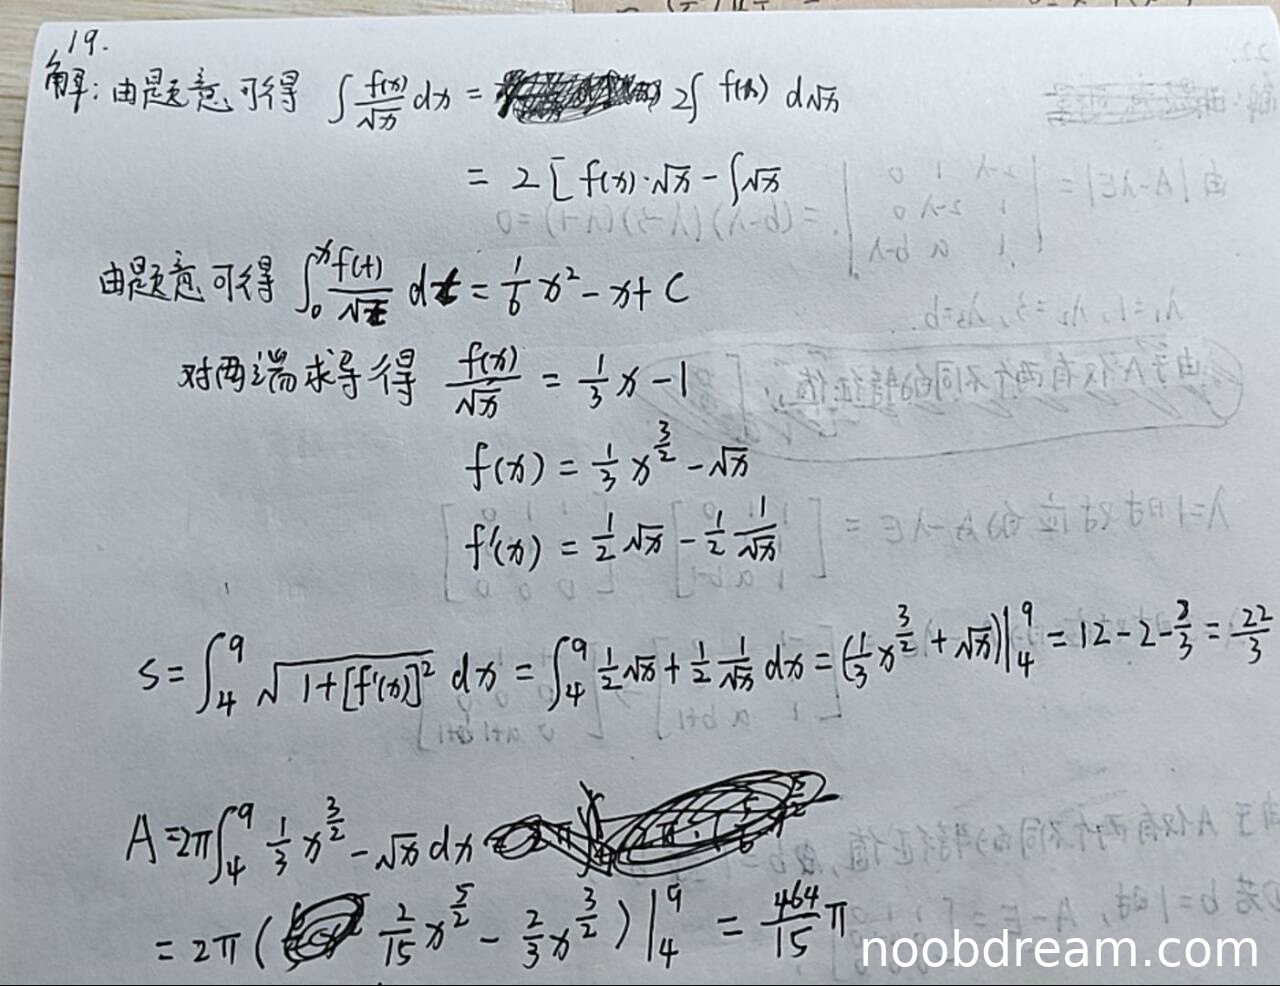 19.
解: 由题意可得 ∫ f(x)/√x dx = 2∫ f(x) d√x
= 2 [ f(x)·√x - ∫√x
由题意可得 ∫₀ˣ f(t)/√t dt = 1/6 x² - x + C
对两端求导得 f(x)/√x = 1/3 x - 1
f(x) = 1/3 x^(3/2) - √x
f'(x) = 1/2 √x - 1/2 1/√x
S = ∫₄⁹ √(1+[f'(x)]²) dx = ∫₄⁹ 1/2 √x + 1/2 1/√x dx = (1/3 x^(3/2) + √x)|₄⁹ = 12 - 2 - 8/3 = 22/3
A = 2π∫₄⁹ 1/3 x^(3/2) - √x dx
= 2π ( 2/15 x^(5/2) - 2/3 x^(3/2) )|₄⁹ = 464/15 π
noobdream.com